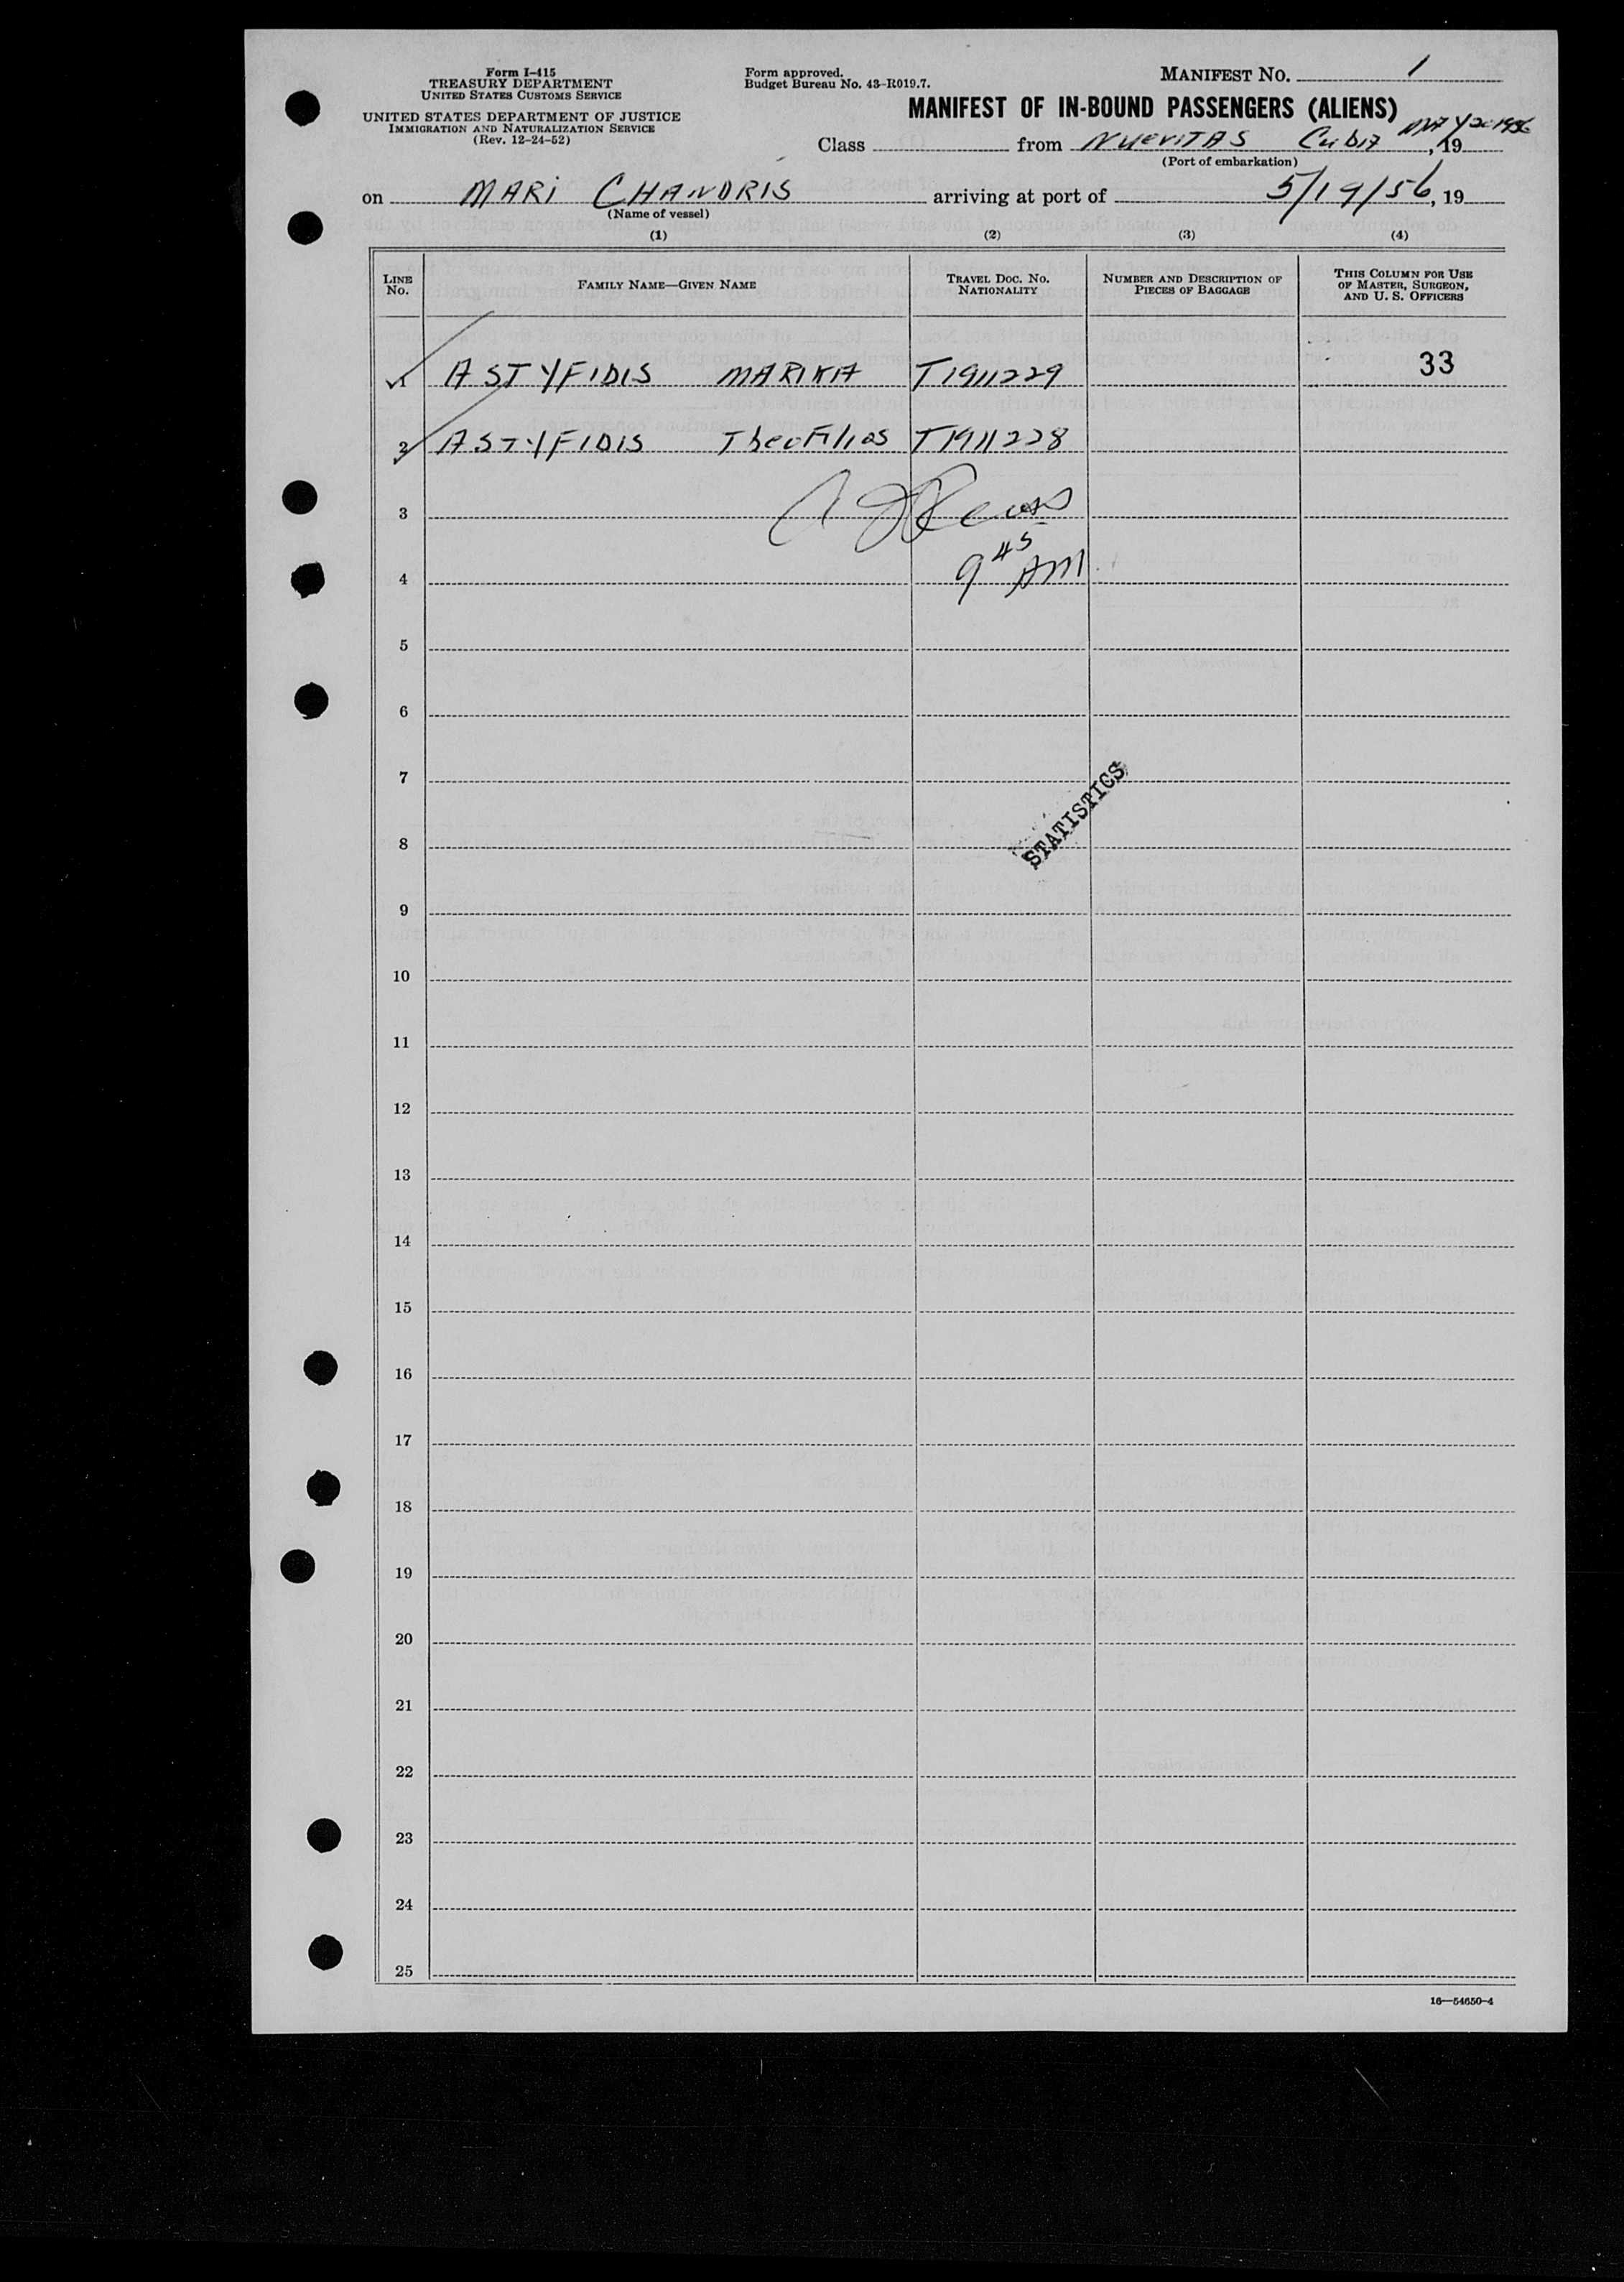 Form I-415
TREASURY DEPARTMENT
UNITED STATES CUSTOMS SERVICE
UNITED STATES DEPARTMENT OF JUSTICE
IMMIGRATION AND NATURALIZATION SERVICE
(Rev. 12-24-52)
Form approved.
Budget Bureau No. 43-R019.7.
MANIFEST NO. 1
MANIFEST OF IN-BOUND PASSENGERS (ALIENS)
Class from NUEVITAS Cuba MAY 1956, 19
(Port of embarkation)
on MARI CHANDRIS arriving at port of 5/19/56, 19
(Name of vessel)
(1) (2) (3) (4)
LINE NO. FAMILY NAME—GIVEN NAME TRAVEL DOC. NO. NATIONALITY NUMBER AND DESCRIPTION OF PIECES OF BAGGAGE THIS COLUMN FOR USE OF MASTER, SURGEON, AND U. S. OFFICERS
1 ASTYFIDIS MARIKA T1911229 33
2 ASTYFIDIS TheoFilios T1911228
3
4 9 45 AM
5
6
7
STATISTICS
8
9
10
11
12
13
14
15
16
17
18
19
20
21
22
23
24
25
16—54650-4